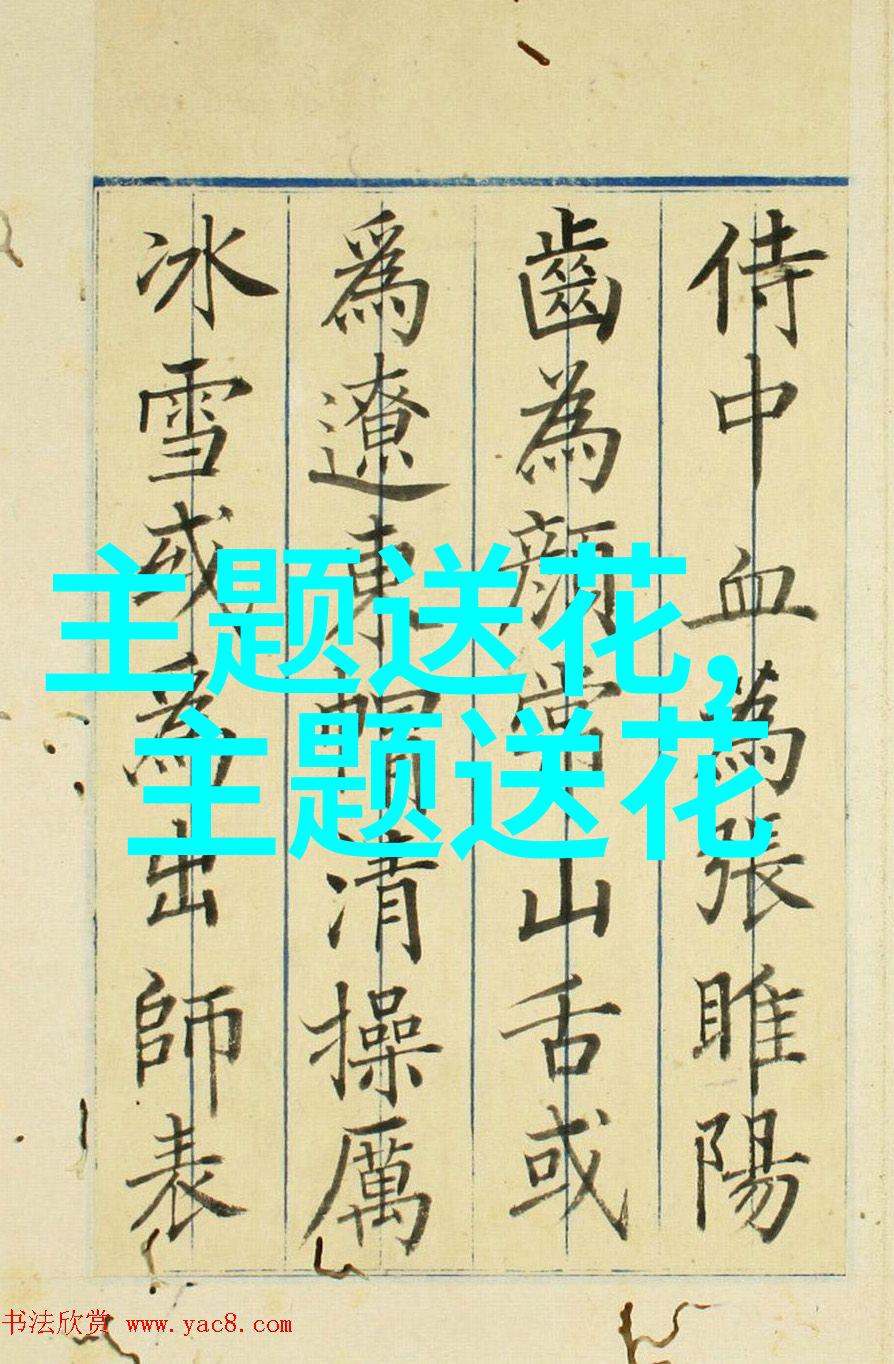 侍中血為張睢陽
齒為顏常山舌或
爲遼東帽清操厲
冰雪或為出師表
主题送花,
主题送花
书法欣赏 www.yac8.com